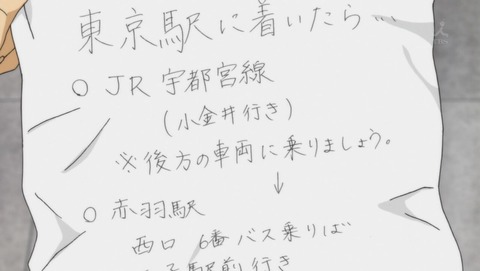 東京駅に着いたら…
○ JR 宇都宮線
(小金井行き)
※後方の車両に乗りましょう。
↓
○ 赤羽駅
西口 6番バス乗りば
子駅前行き